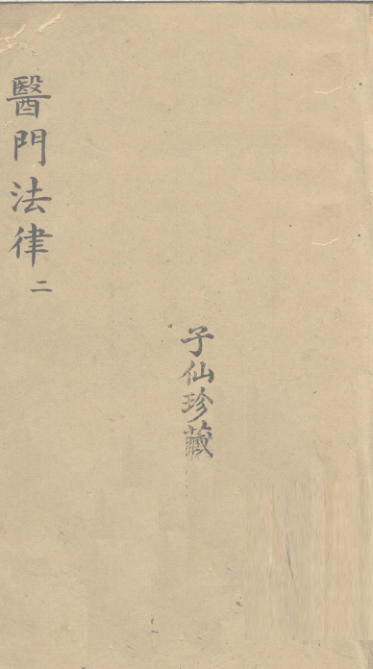 醫門法律 二
子仙珍藏